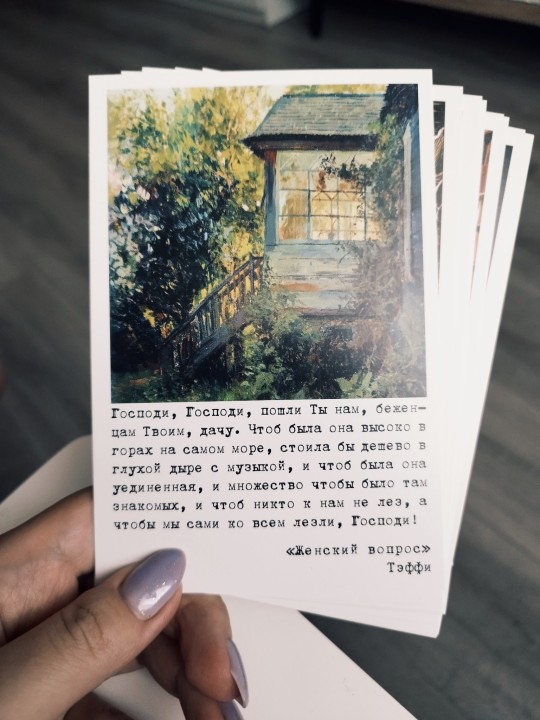 Господи, Господи, пошли Ты нам, бежен-
цам Твоим, дачу. Чтоб была она высоко в
горах на самом море, стоила бы дешево в
глухой дыре с музыкой, и чтоб была она
уединенная, и множество чтобы было там
знакомых, и чтоб никто к нам не лез, а
чтобы мы сами ко всем лезли, Господи!
«Женский вопрос»
Тэффи